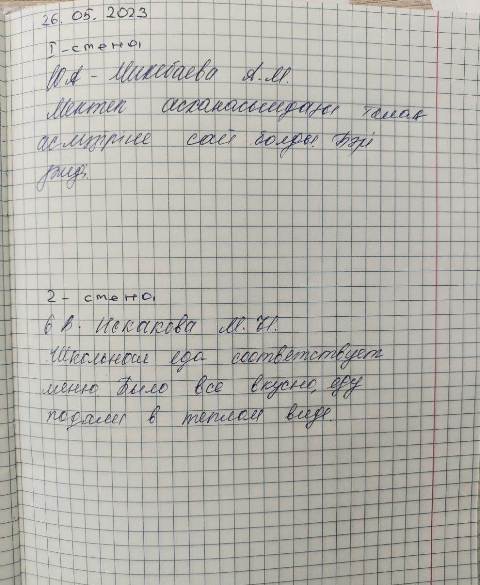 26.05.2023
I-смена
10А - Минебаева А.М.
Мектеп асханасындағы тамақ
ас мәзіріне сай болды. Бәрі
2-смена
6 В. Искакова М.И.
Школьная еда соответствует
меню. Было все вкусно, еду
подали в теплом виде.